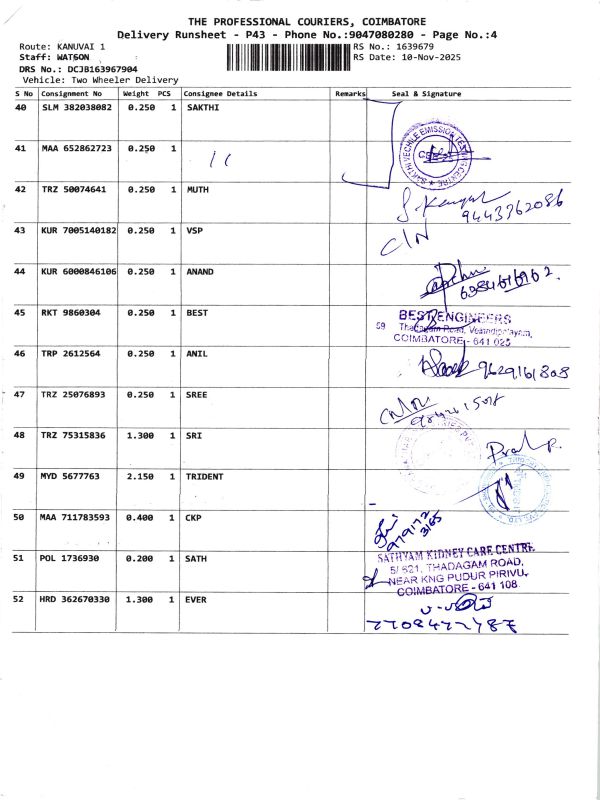 THE PROFESSIONAL COURIERS, COIMBATORE
Delivery Runsheet - P43 - Phone No.:9047080280 - Page No.:4
Route: KANUVAI 1
RS No.: 1639679
Staff: WATSON
RS Date: 10-Nov-2025
DRS No.: DCJB163967904
Vehicle: Two Wheeler Delivery
S No Consignment No Weight PCS Consignee Details Remarks Seal & Signature
40 SLM 382038082 0.250 1 SAKTHI
SAKTHI VECHILE EMISSION TESTING CENTRE
41 MAA 652862723 0.250 1 11
42 TRZ 50074641 0.250 1 MUTH
9443762086
43 KUR 7005140182 0.250 1 VSP
C/N
44 KUR 6000846106 0.250 1 ANAND
45 RKT 9860304 0.250 1 BEST
BEST ENGINEERS
59 Thadagam Road,
COIMBATORE - 641 025
46 TRP 2612564 0.250 1 ANIL
9629161808
47 TRZ 25076893 0.250 1 SREE
48 TRZ 75315836 1.300 1 SRI
49 MYD 5677763 2.150 1 TRIDENT
50 MAA 711783593 0.400 1 CKP
979172
3165
51 POL 1736930 0.200 1 SATH
SATHYAM KIDNEY CARE CENTRE
5/ 521, THADAGAM ROAD,
NEAR KNG PUDUR PIRIVU,
COIMBATORE - 641 108
52 HRD 362670330 1.300 1 EVER
7708477487